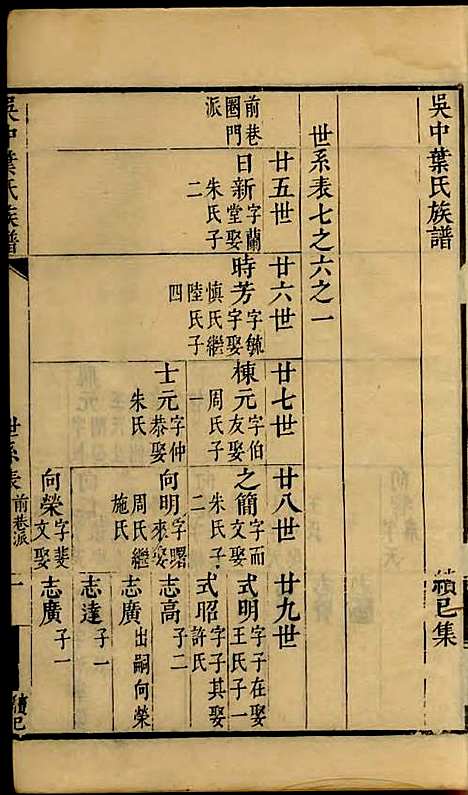 吳中葉氏族譜
續巳集
世系表七之六之一
前巷圈門派
廿五世
日新 字蘭堂娶朱氏子二
廿六世
時芳 字毓字娶慎氏繼陸氏子四
廿七世
棟元 字伯友娶周氏子一
士元 字仲恭娶朱氏
廿八世
之簡 字而文娶朱氏子二
向明 字曙來娶周氏繼施氏
向榮 字斐文娶
廿九世
式明 字子在娶王氏子一
式昭 字子其娶許氏
志高 子二
志廣 出嗣向榮
志達 子一
志廣 子一
吳中葉氏族譜
世系表 前巷派
一
續巳